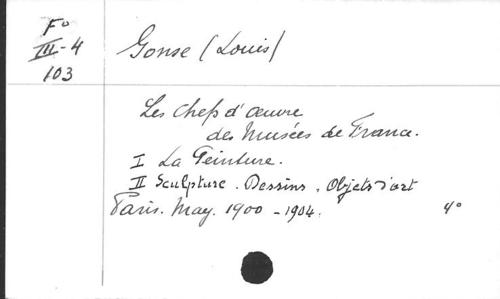 Fo
III-4
103
Gonse (Louis)
Les Chefs d'œuvre
des Musées de France.
I La Peinture.
II Sculpture. Dessins. Objets d'art
Paris. May. 1900-1904. 4°